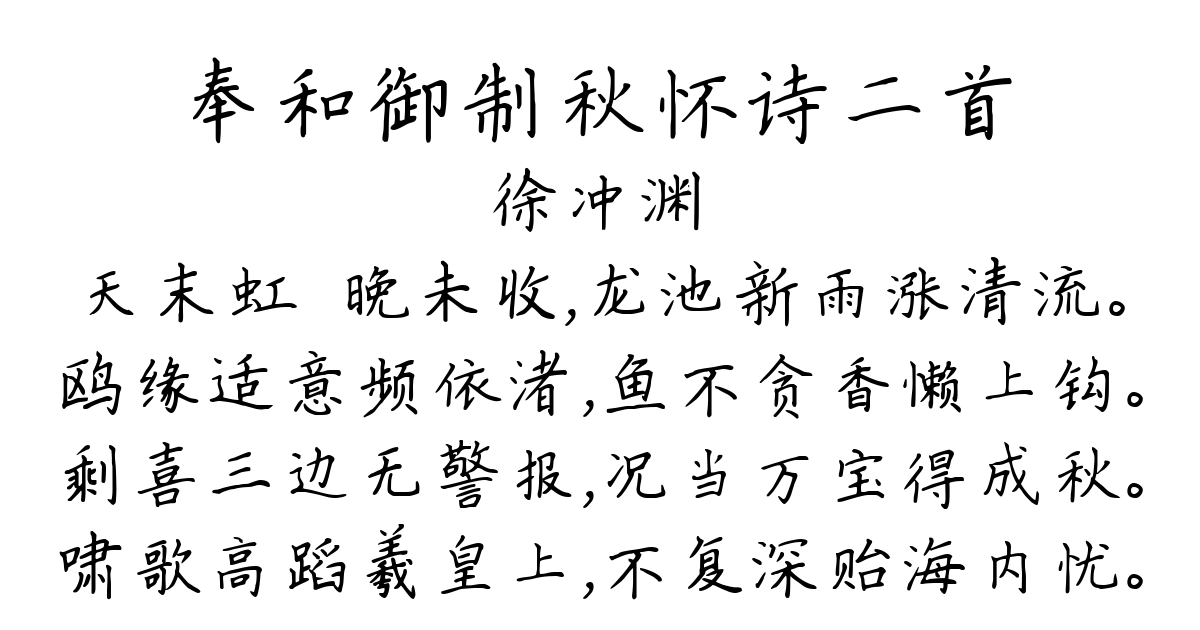 奉和御制秋怀诗二首
徐冲渊
天末虹 晚未收,龙池新雨涨清流。
鸥缘适意频依渚,鱼不贪香懒上钩。
剩喜三边无警报,况当万宝得成秋。
啸歌高蹈羲皇上,不复深贻海内忧。